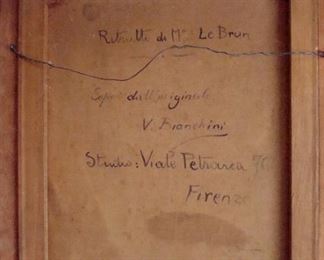 Ritratto di Mme Le Brun
dall'originale
V. Bianchini
Studio: Viale Petrarca
Firenze